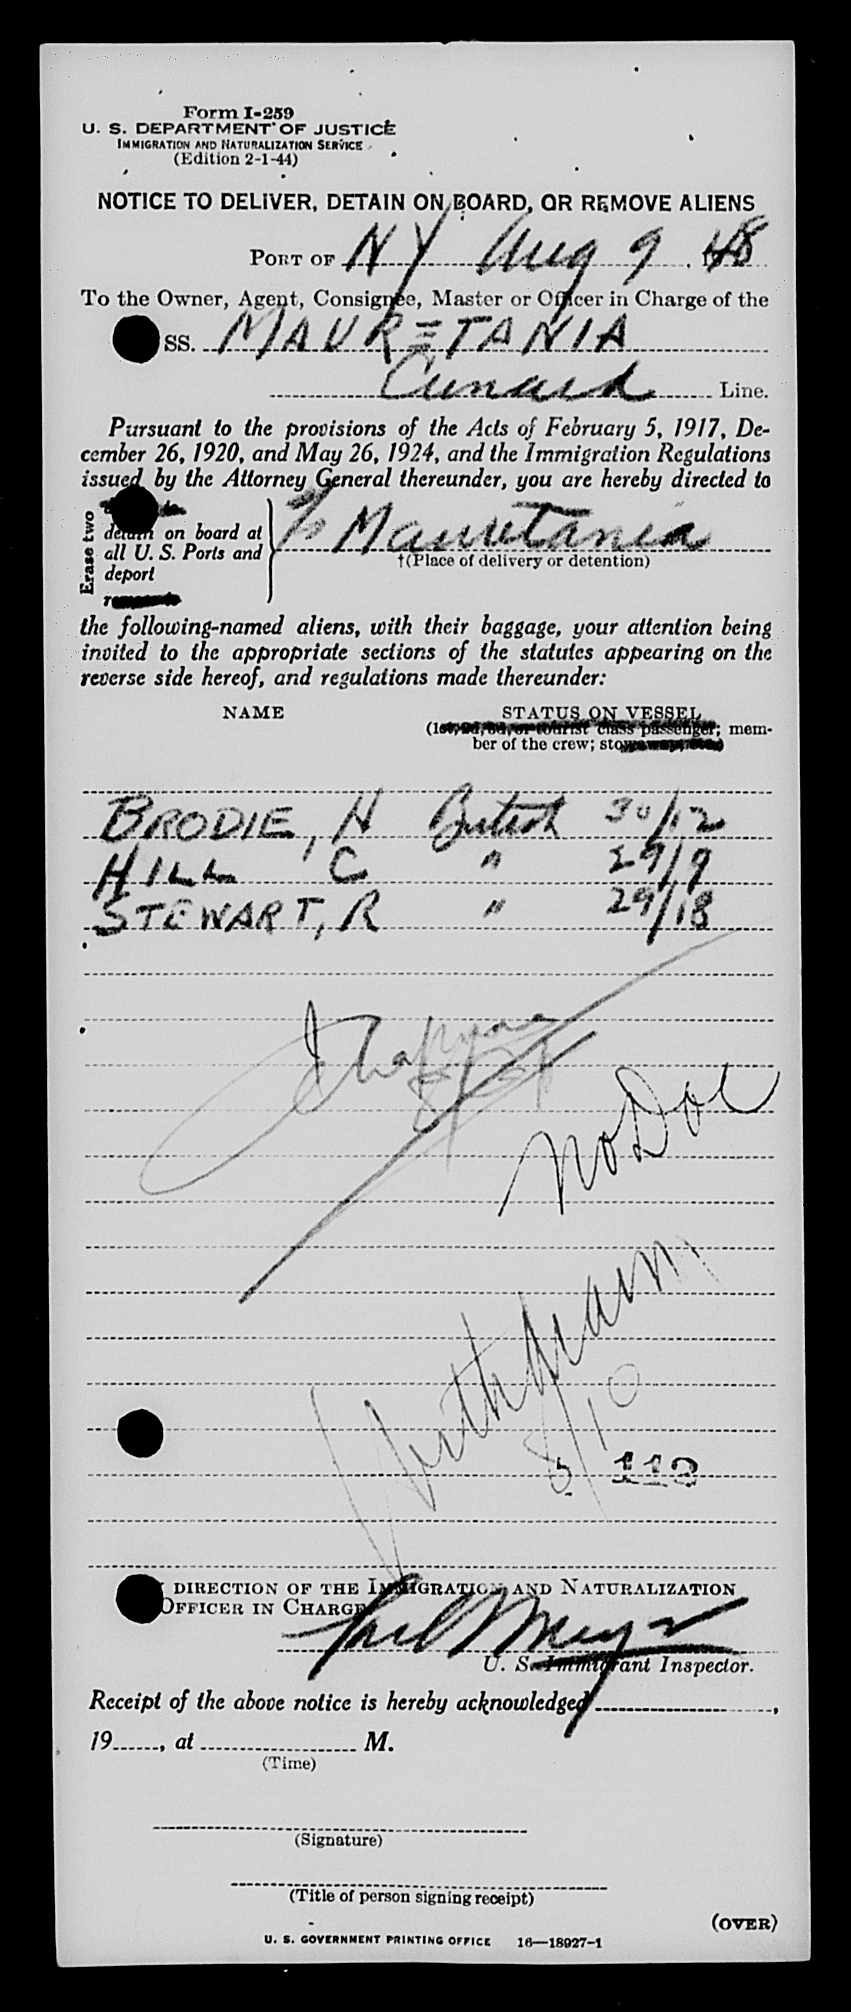 Form I-259
U. S. DEPARTMENT OF JUSTICE
IMMIGRATION AND NATURALIZATION SERVICE
(Edition 2-1-44)
NOTICE TO DELIVER, DETAIN ON BOARD, OR REMOVE ALIENS
PORT OF NY Aug 9, 1948
To the Owner, Agent, Consignee, Master or Officer in Charge of the
SS. MAURETANIA
Cunard Line.
Pursuant to the provisions of the Acts of February 5, 1917, De-
cember 26, 1920, and May 26, 1924, and the Immigration Regulations
issued by the Attorney General thereunder, you are hereby directed to
Erase two
detain on board at
all U. S. Ports and
deport
Mauretania
†(Place of delivery or detention)
the following-named aliens, with their baggage, your attention being
invited to the appropriate sections of the statutes appearing on the
reverse side hereof, and regulations made thereunder:
NAME STATUS ON VESSEL
(1st, 2d, 3d, or tourist class passenger; mem-
ber of the crew; stowaway, etc.)
BRODIE, H British 30/12
HILL C " 29/9
STEWART, R " 29/18
No Doc
8/10
113
DIRECTION OF THE IMMIGRATION AND NATURALIZATION
OFFICER IN CHARGE
U. S. Immigrant Inspector.
Receipt of the above notice is hereby acknowledged ,
19 , at M.
(Time)
(Signature)
(Title of person signing receipt)
(OVER)
U. S. GOVERNMENT PRINTING OFFICE 16—18927-1